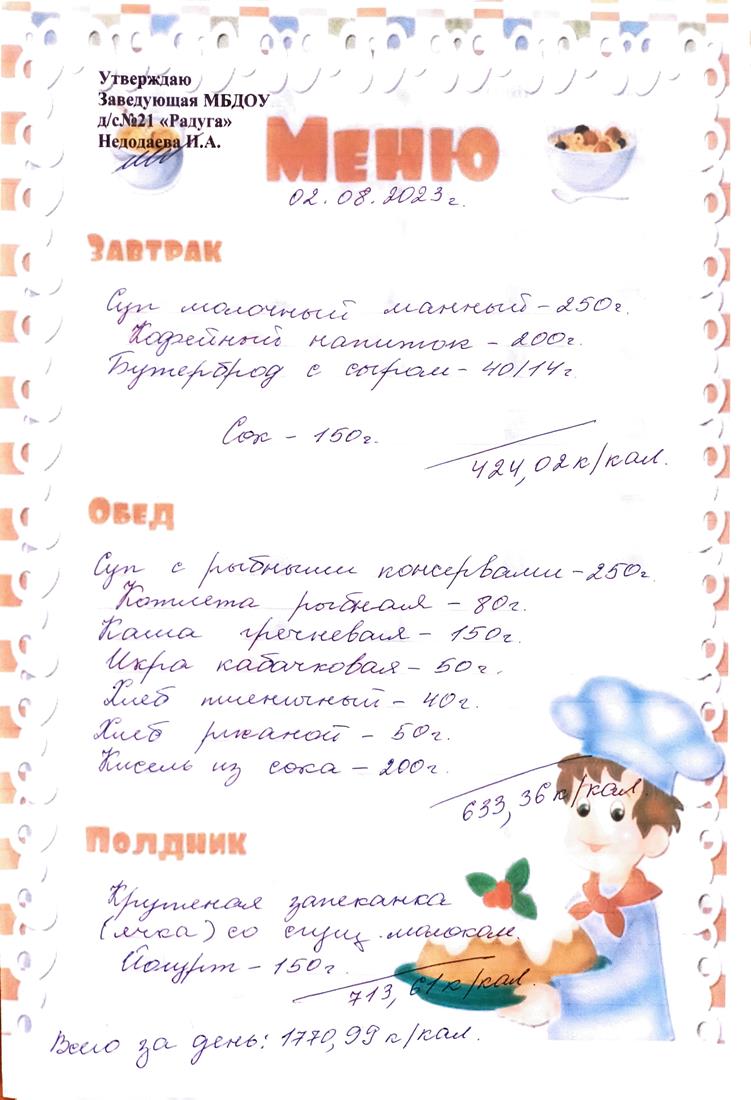 Утверждаю
Заведующая МБДОУ
д/с№21 «Радуга»
Недодаева И.А.
Меню
02.08.2023г.
Завтрак
Суп молочный манный - 250г.
Кофейный напиток - 200г.
Бутерброд с сыром - 40/14г.
Сок - 150г.
424,02к/кал.
Обед
Суп с рыбными консервами - 250г.
Котлета рыбная - 80г.
Каша гречневая - 150г.
Икра кабачковая - 50г.
Хлеб пшеничный - 40г.
Хлеб ржаной - 50г.
Кисель из сока - 200г.
633,36к/кал.
Полдник
Крупеная запеканка
(ячка) со сгущ. молоком.
Йогурт - 150г.
713,61к/кал.
Всего за день: 1770,99к/кал.